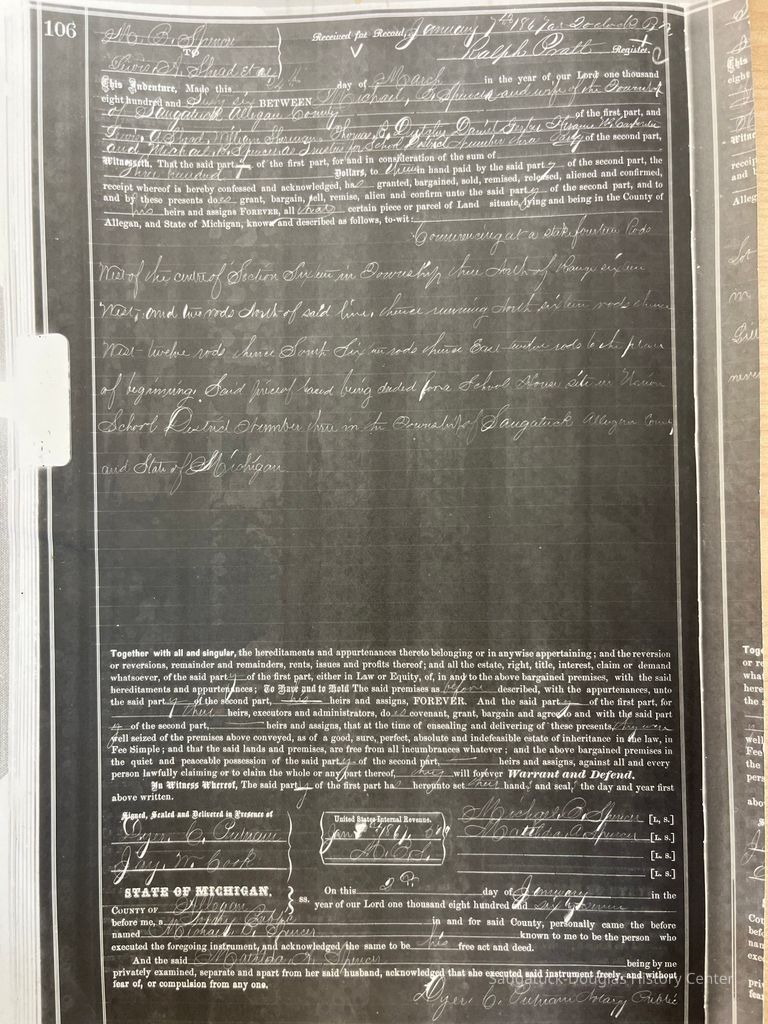 106
M. B. Spencer
TO
Received for Record, January 7th 1867 at 2 o'clock P. M
Ralph Pratt Register.
This Indenture, Made this day of March in the year of our Lord one thousand
eight hundred and Sixty six BETWEEN Michael B. Spencer and wife of the Township
of Saugatuck Allegan County of the first part, and
Daniel
and Michael B Spencer as Trustees for School District Number three of the second part,
Witnesseth, That the said part of the first part, for and in consideration of the sum of
three hundred Dollars, to them in hand paid by the said part y of the second part, the
receipt whereof is hereby confessed and acknowledged, has granted, bargained, sold, remised, released, aliened and confirmed,
and by these presents does grant, bargain, sell, remise, alien and confirm unto the said part y of the second part, and to
his heirs and assigns FOREVER, all that certain piece or parcel of Land situate, lying and being in the County of
Allegan, and State of Michigan, known and described as follows, to-wit:
Commencing at a stake fourteen Rods
West of the centre of Section Sixteen in Township three North of Range sixteen
West, and two rods North of said line, thence running North sixteen rods thence
West twelve rods thence South Sixteen rods thence East twelve rods to the place
of beginning. Said piece of land being deeded for a School House site in Union
School District Number three in the Township of Saugatuck Allegan County
and State of Michigan
Together with all and singular, the hereditaments and appurtenances thereto belonging or in anywise appertaining; and the reversion
or reversions, remainder and remainders, rents, issues and profits thereof; and all the estate, right, title, interest, claim or demand
whatsoever, of the said part y of the first part, either in Law or Equity, of, in and to the above bargained premises, with the said
hereditaments and appurtenances; To Have and to Hold The said premises as before described, with the appurtenances, unto
the said part y of the second part, his heirs and assigns, FOREVER. And the said part of the first part, for
their heirs, executors and administrators, do es covenant, grant, bargain and agree to and with the said part
y of the second part, heirs and assigns, that at the time of ensealing and delivering of these presents, they were
well seized of the premises above conveyed, as of a good, sure, perfect, absolute and indefeasible estate of inheritance in the law, in
Fee Simple; and that the said lands and premises, are free from all incumbrances whatever; and the above bargained premises in
the quiet and peaceable possession of the said part y of the second part, heirs and assigns, against all and every
person lawfully claiming or to claim the whole or any part thereof, they will forever Warrant and Defend.
In Witness Whereof, The said part y of the first part has hereunto set their hand s and seal, the day and year first
above written.
Signed, Sealed and Delivered in Presence of
Dyer C. Putnam
Jay R. Cook
United States Internal Revenue.
M. B. S.
Michael B. Spencer [L. S.]
Matilda A. Spencer [L. S.]
[L. S.]
[L. S.]
STATE OF MICHIGAN,
COUNTY OF Allegan ss.
On this 2nd day of January in the
year of our Lord one thousand eight hundred and sixty seven
before me, a Notary Public in and for said County, personally came the before
named Michael B. Spencer known to me to be the person who
executed the foregoing instrument, and acknowledged the same to be his free act and deed.
And the said Matilda A. Spencer being by me
privately examined, separate and apart from her said husband, acknowledged that she executed said instrument freely, and without
fear of, or compulsion from any one.
Dyer C. Putnam Notary Public
Saugatuck-Douglas History Center